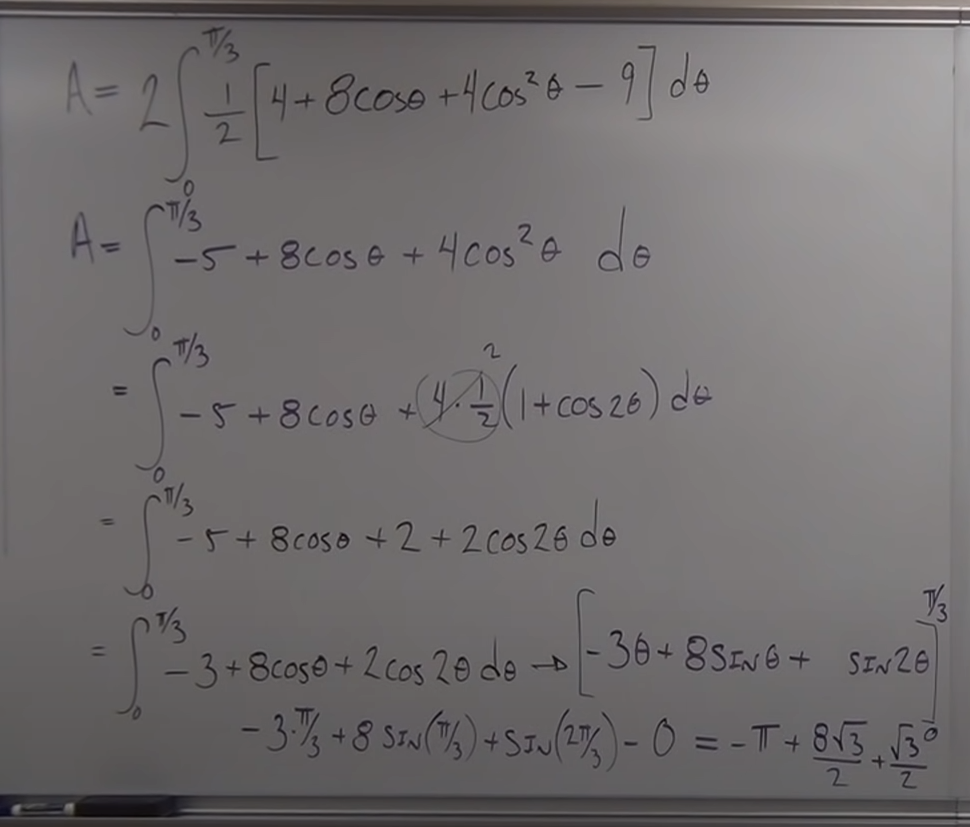 A = 2 ∫₀^{π/3} 1/2 [4 + 8cosθ + 4cos²θ − 9] dθ
A = ∫₀^{π/3} −5 + 8cosθ + 4cos²θ dθ
= ∫₀^{π/3} −5 + 8cosθ + (4·1/2)² (1 + cos2θ) dθ
= ∫₀^{π/3} −5 + 8cosθ + 2 + 2cos2θ dθ
= ∫₀^{π/3} −3 + 8cosθ + 2cos2θ dθ → [−3θ + 8SINθ + SIN2θ]₀^{π/3}
−3·π/3 + 8 SIN(π/3) + SIN(2π/3) − 0 = −π + 8√3/2 + √3/2